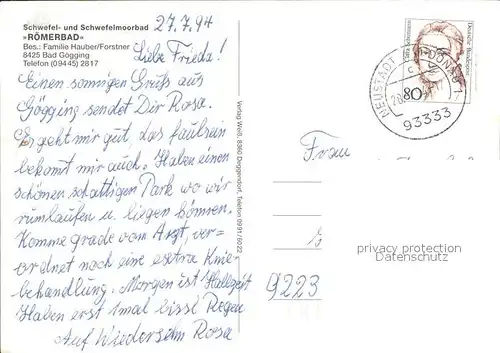 Schwefel- und Schwefelmoorbad
»RÖMERBAD«
Bes.: Familie Hauber/Forstner
8425 Bad Gögging
Telefon (09445) 2817
27.7.94
Liebe Frieda!
Einen sonnigen Gruß aus
Gögging sendet Dir Rosa.
Er geht mir gut, das faulsein
bekomt mir auch. Haben einen
schönen schattigen Park wo wir
rumlaufen u. liegen können.
Komme grade vom Arzt, ver-
ordnet noch eine extra Knie-
behandlung. Morgen ist Halbzeit
Haben erst 1mal bissl Regen
Auf Wiedersehn Rosa
Verlag Weiß, 8360 Deggendorf, Telefon 0991/6022
Deutsche Bundespost
80
NEUSTADT A D DONAU 1
93333
Frau
9223
privacy protection
Datenschutz